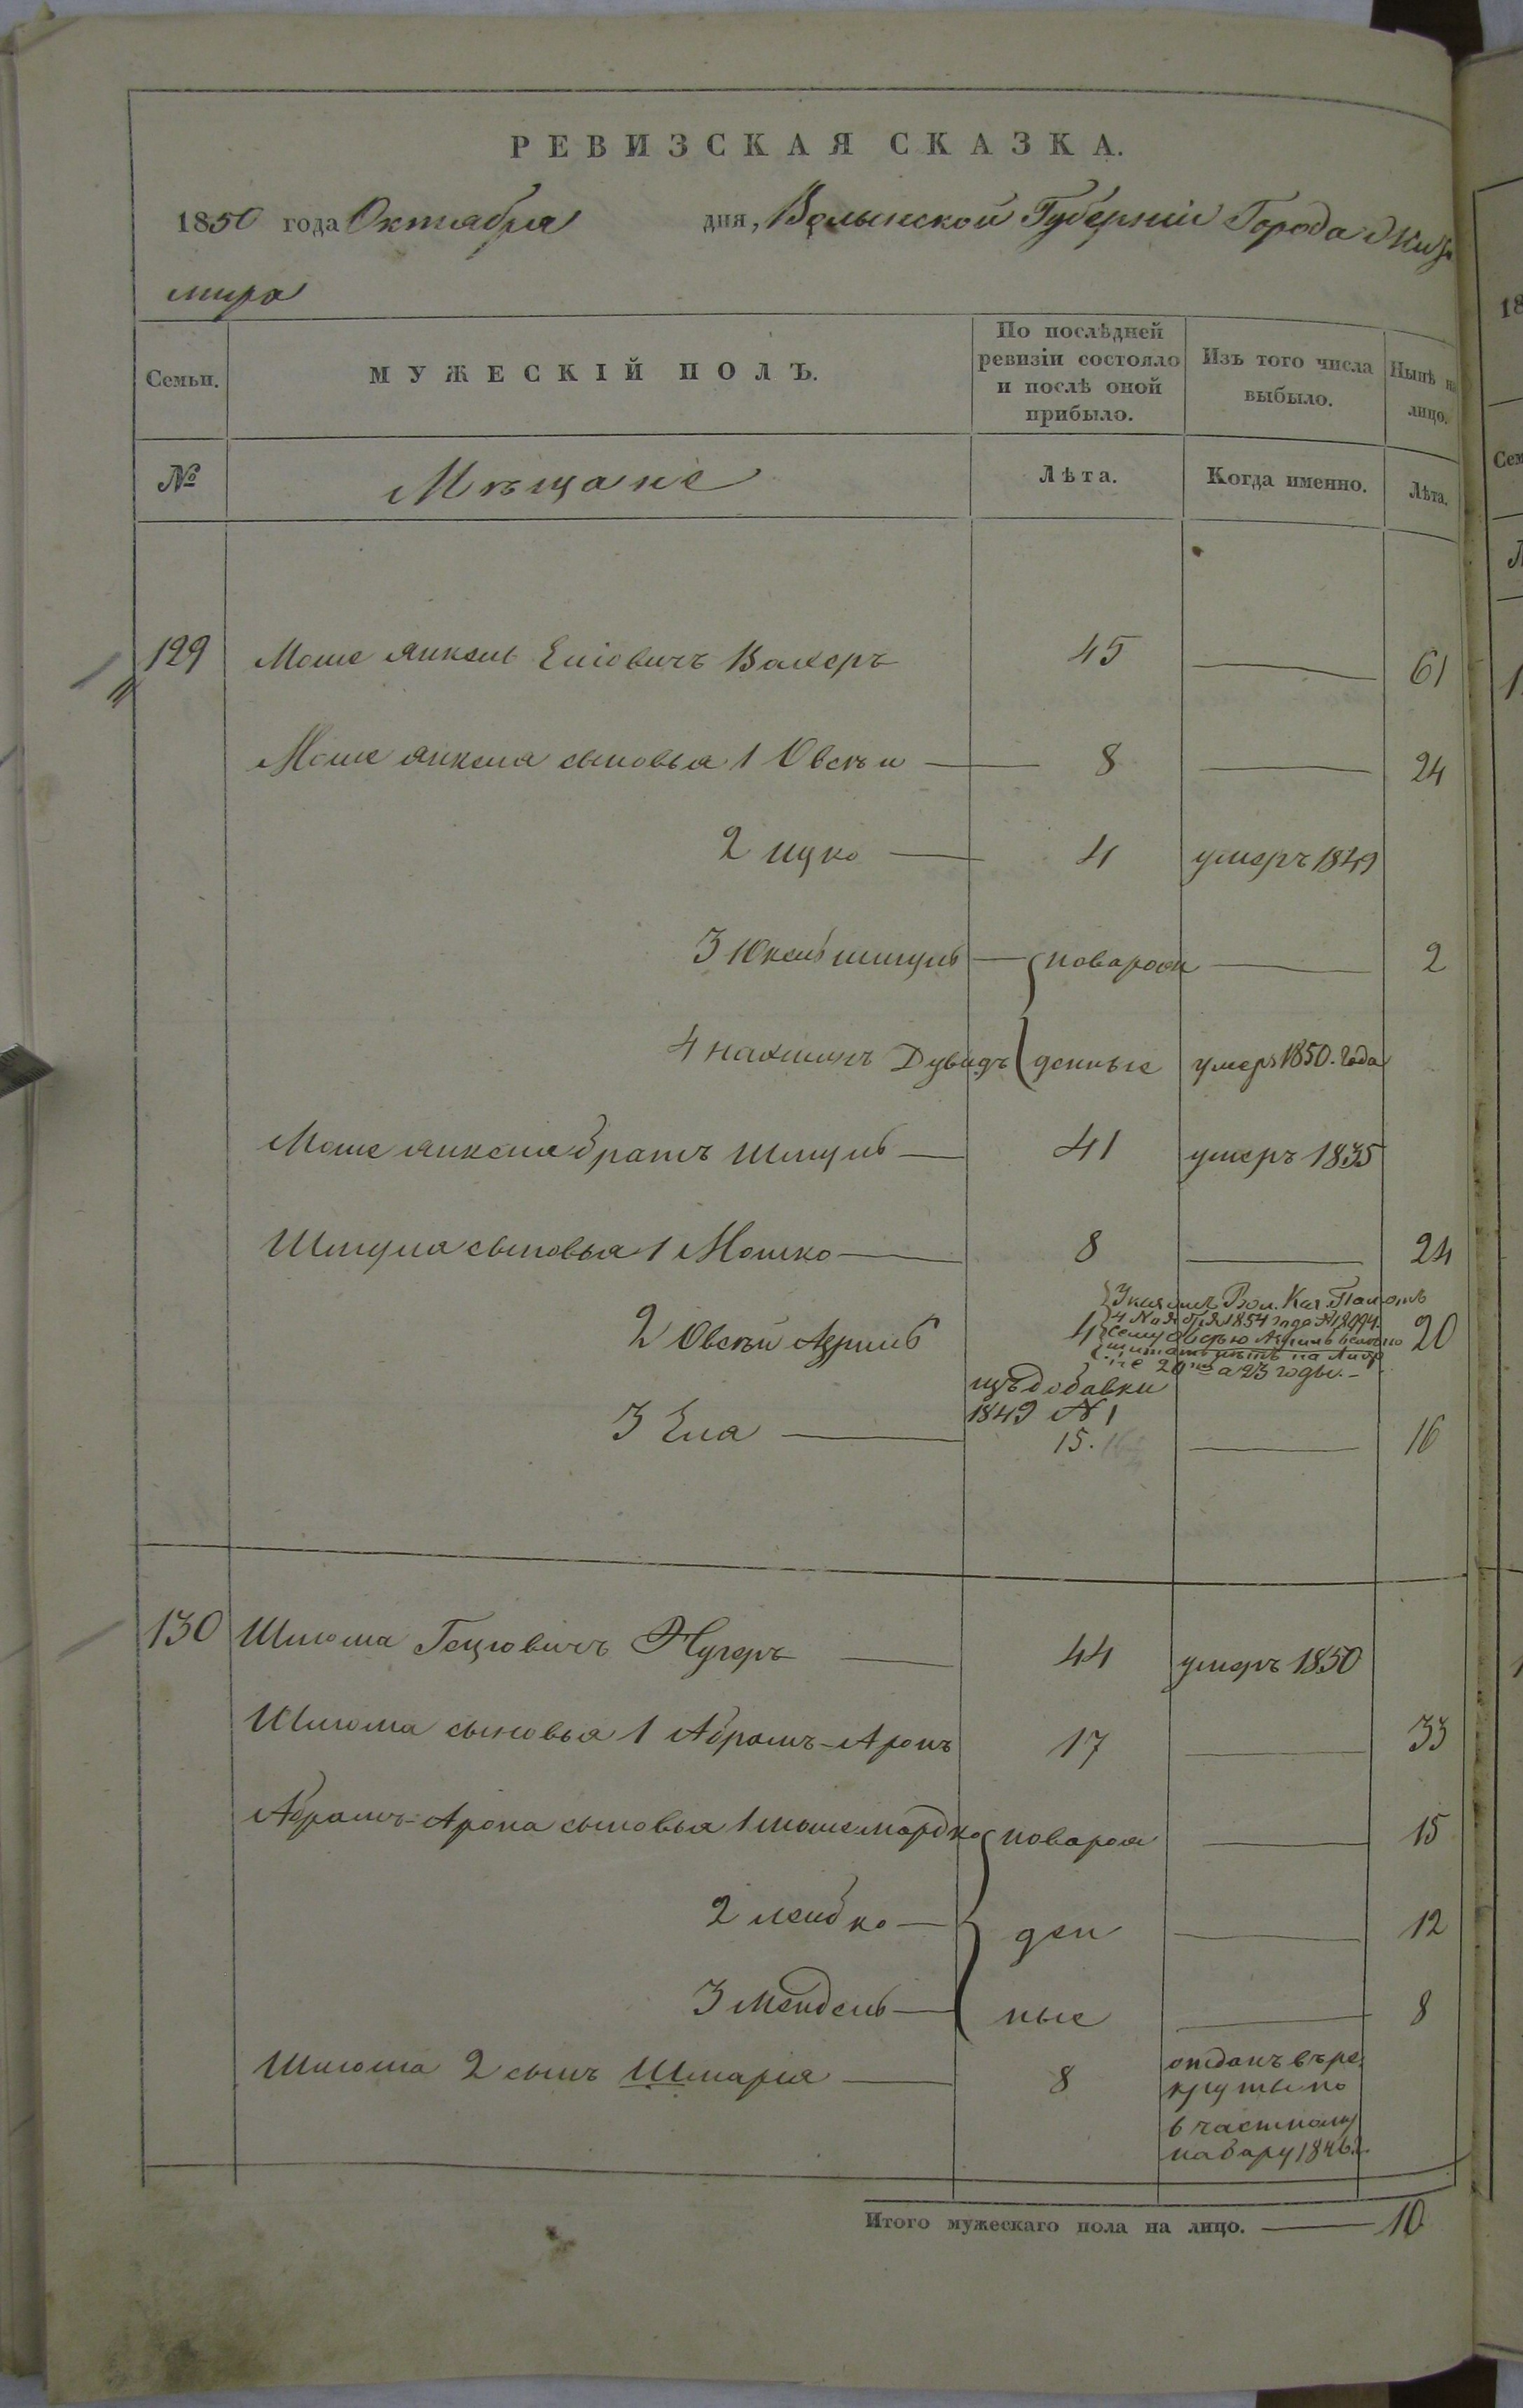 РЕВИЗСКАЯ СКАЗКА.
1850 года Октября дня, Волынской Губерніи Города Жито
мира
Семьи. МУЖЕСКІЙ ПОЛЪ. По послѣдней ревизіи состояло и послѣ оной прибыло. Изъ того числа выбыло. Нынѣ на лицо.
№ Мѣщане Лѣта. Когда именно. Лѣта.
129 Моше Янкель Еліовичъ Вахеръ 45 61
Моше Янкеля сыновья 1 Овсѣй 8 24
2 Ицко 4 умеръ 1849
3 Юкель Шмуль новорож 2
4 Нахманъ Дувидъ денные умеръ 1850. года
Моше Янкеля братъ Шмуль 41 умеръ 1835
Шмуля сыновья 1 Мошко 8 24
Указомъ Вол. Каз. Пал. отъ
4 Ноября 1854 года №
2 Овсѣй Азриль 4 20
сему Овсѣю Азрилю велѣно
считать лѣтъ на лицо
не 20ть а 23 годы.
изъ добавки
1849 № 1
3 Еля 15. 16
130 Шлиома Геціовичъ 44 умеръ 1850
Шлиома сыновья 1 Абрамъ-Аронъ 17 33
Абрамъ-Арона сыновья 1 Мошемордко новорож 15
2 Лейбко ден 12
3 Мендель ные 8
Шлиома 2 сынъ Шмарія 8 отданъ въ ре
круты по
частному
набору 1846 г.
Итого мужескаго пола на лицо. 10